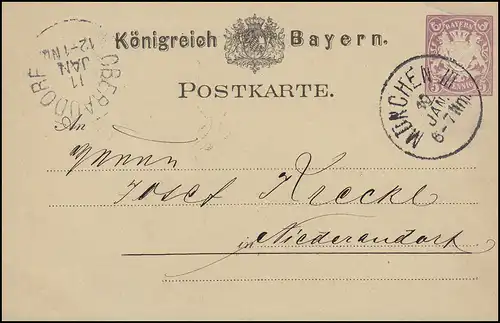 Königreich Bayern.
POSTKARTE.
BAYERN
5 5
PFENNIG
MÜNCHEN III.
10
JAN
6-7 Nm
OBERAUDORF
11
JAN
12-1 Nm
An
Herrn
Josef Kreckl
in Niederaudorf